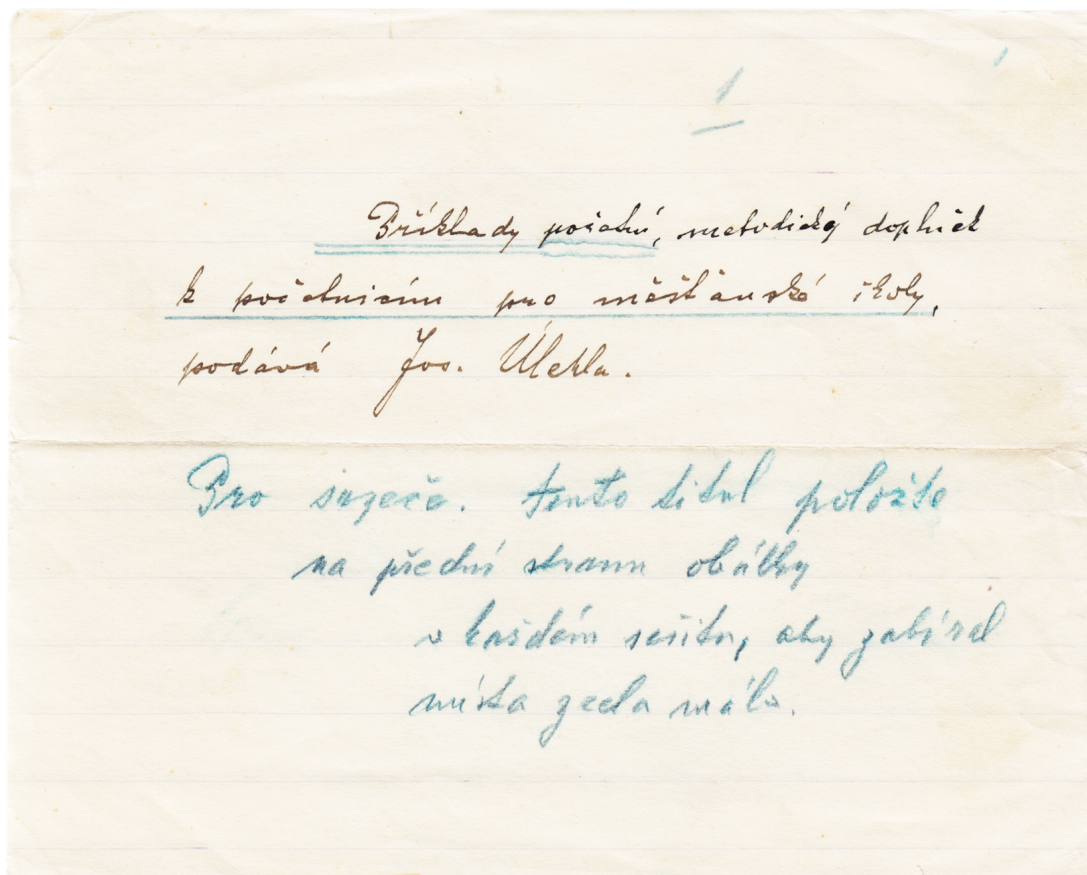 1
Příklady početní, metodický doplněk
k početnicím pro měšťanské školy,
podává Jos. Úlehla.
Pro sazeče. Tento titul položte
na přední stranu obálky
v každém sešitu, aby zabíral
místa zcela málo.